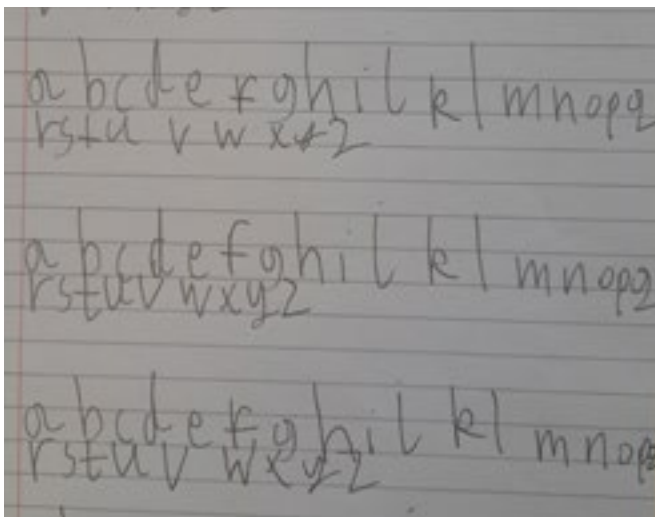 a b c d e f g h i l k l m n o p q
r s t u v w x y z
a b c d e f g h i l k l m n o p q
r s t u v w x y z
a b c d e f g h i l k l m n o p
r s t u v w x y z